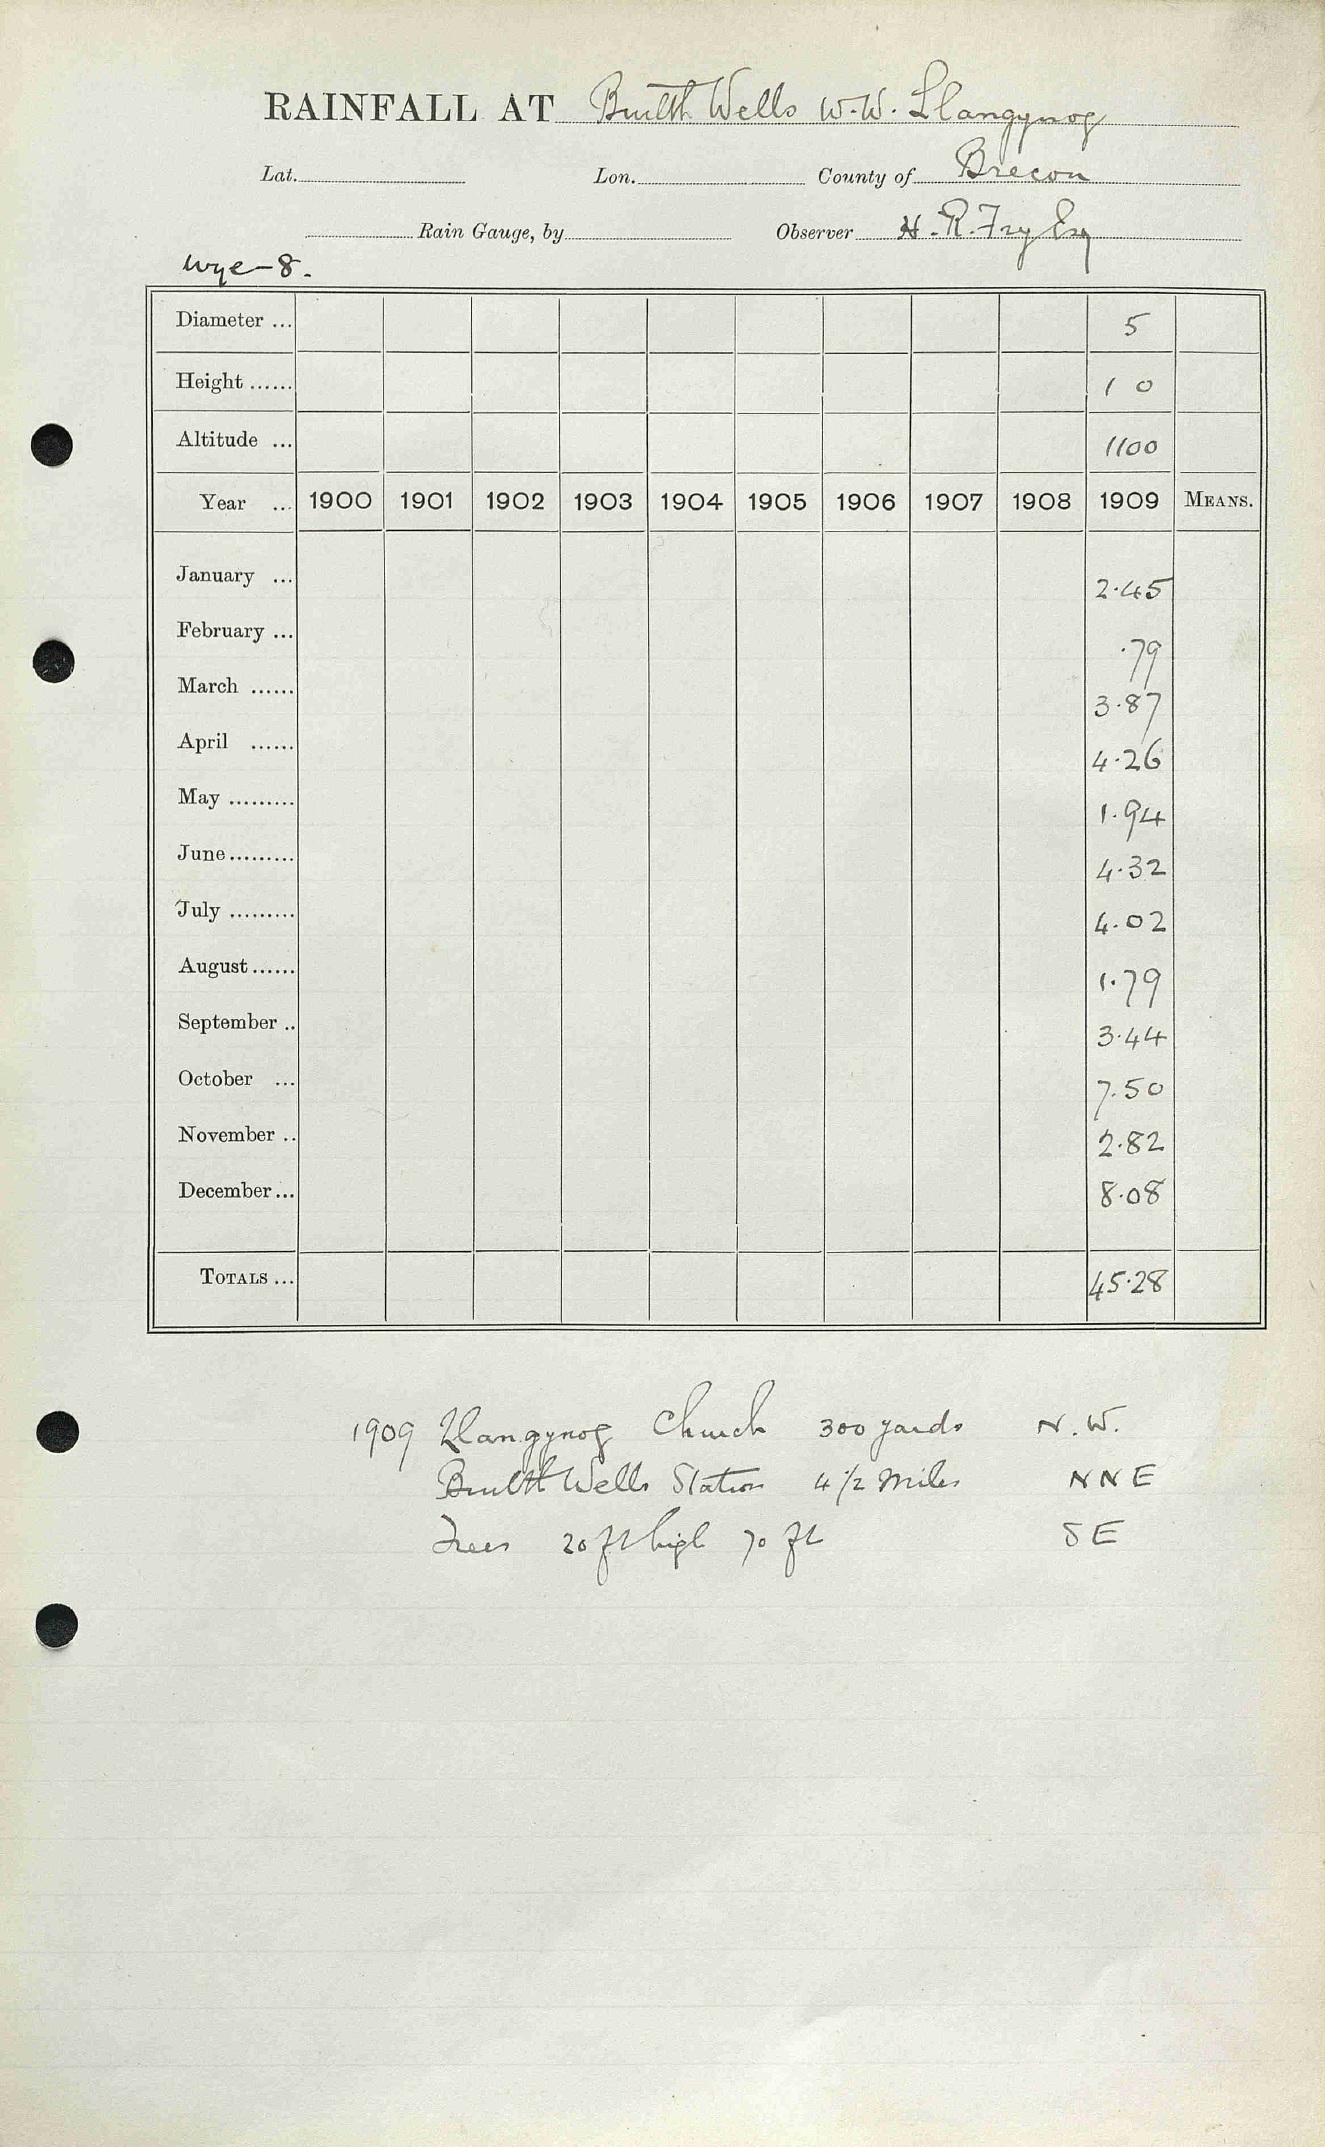 RAINFALL AT Builth Wells W.W. Llangynog
Lat. Lon. County of Brecon
Rain Gauge, by Observer H. R. Fry Esq
Wye-8.
Diameter ... 5
Height ...... 1 0
Altitude ... 1100
Year ... 1900 1901 1902 1903 1904 1905 1906 1907 1908 1909 MEANS.
January ... 2.45
February ... .79
March ...... 3.87
April ...... 4.26
May ......... 1.94
June ......... 4.32
July ......... 4.02
August ...... 1.79
September .. 3.44
October ... 7.50
November .. 2.82
December ... 8.08
TOTALS ... 45.28
1909 Llangynog Church 300 yards N.W.
Builth Wells Station 4 1/2 miles NNE
Trees 20 ft high 70 ft SE